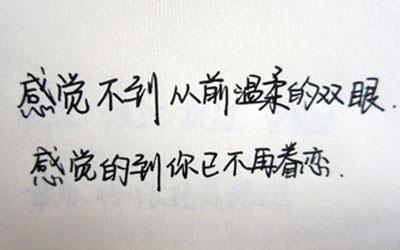 感觉不到从前温柔的双眼.
感觉的到你已不再眷恋.